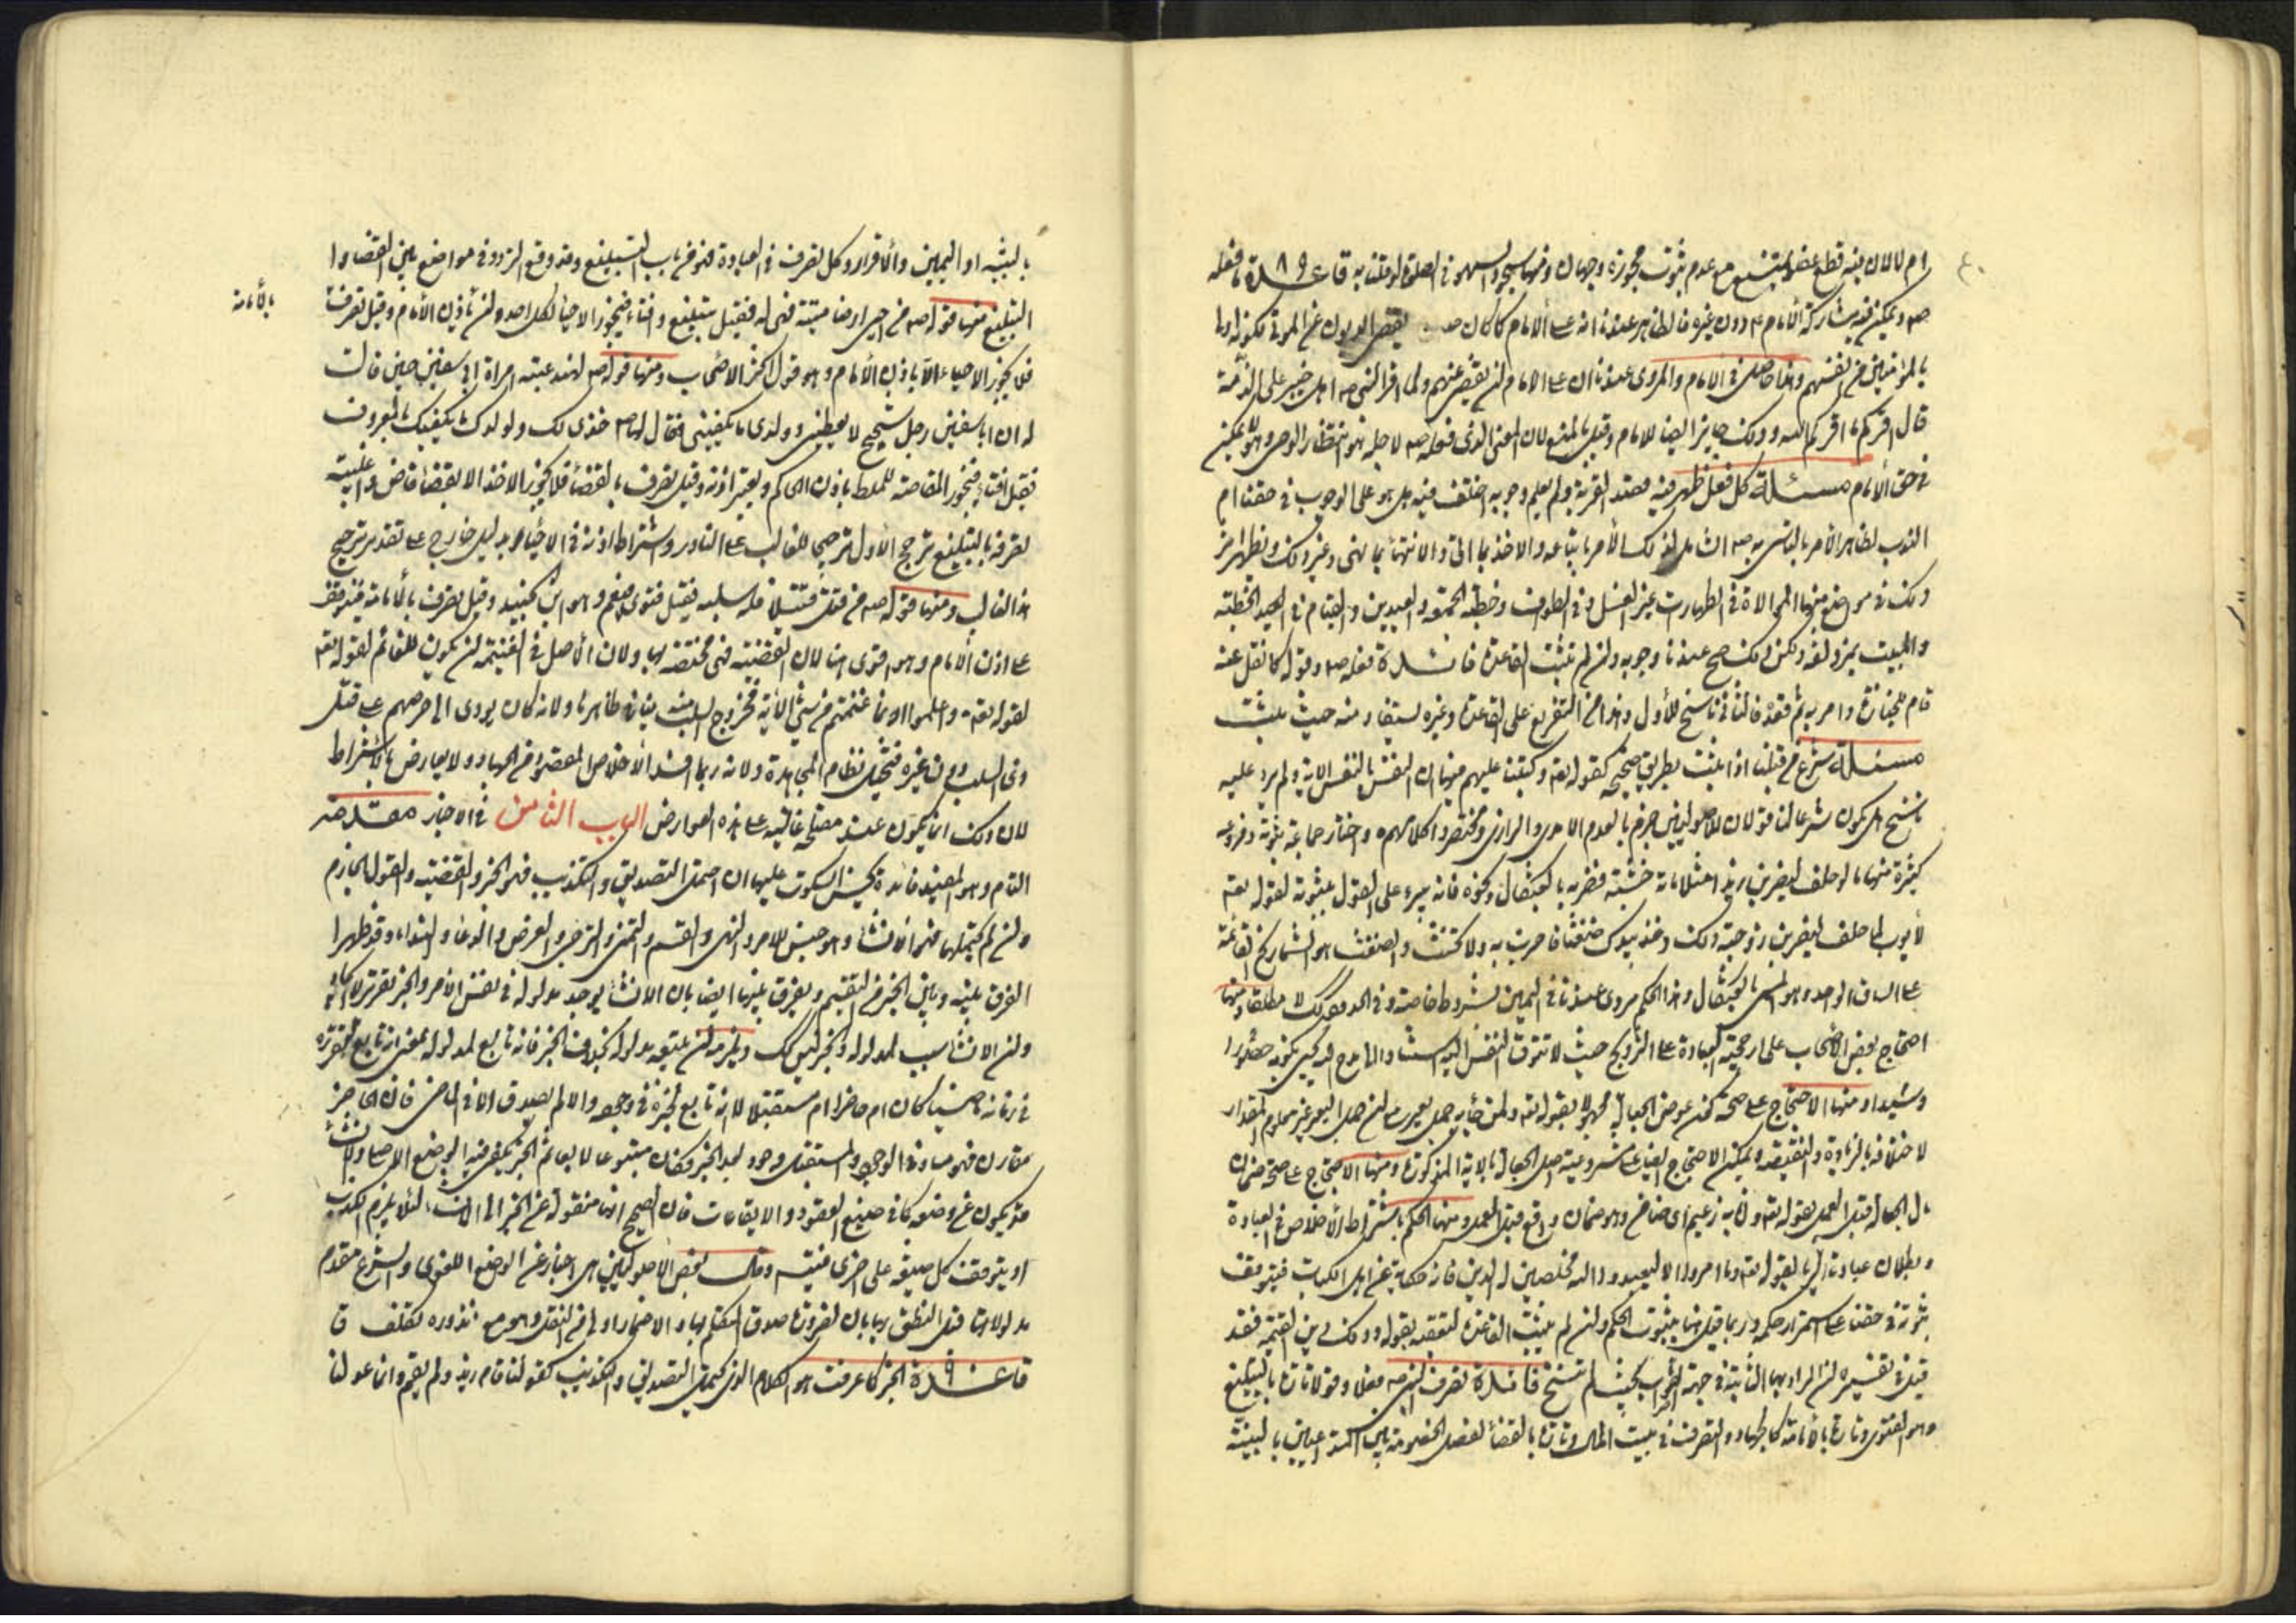 ام لا لان فيه قطع عضو ممتنع مع عدم ثبوت مجوزه وجهان ومنها سجود السهو في الصلوة لو قلنا به قاعدة ما فعله
صه ويمكن فيه مشاركة الامام ع دون غيره فالظاهر عندنا انه على الامام كما كان صه يقضي الديون عن الموتى لكونه اولى
بالمؤمنين من انفسهم وهذا حاصل في الامام والمروي عندنا ان على الامام ان يقضي عنهم ولما اقر النبي صه اهل خيبر على الذمة
قال اقركم ما اقركم الله وذلك جايز ايضا للامام وقيل بالمنع لان المعنى الذي فعله صه لاجله هو انتظار الوحي وهو لا يمكن
في حق الامام مسئلة كل فعل ظهر فيه قصد القربة ولم يعلم وجوبه اختلف فيه هل هو على الوجوب في حقنا ام
الندب لظاهر الامر بالتاسي به صه الشامل لذلك الامر باتباعه والاخذ بما اتى والانتهاء بما نهى وغير ذلك ويظهر اثر
ذلك في مواضع منها الموالاة في الطهارات غير الغسل وفي الطواف وخطبة الجمعة والعيدين والقيام في الخطبة
والمبيت بمزدلفة ولكن ذلك صح عندنا وجوبه وان لم تثبت القاعدة فائدة فعله صه وقوله كما نقل عنه
قام للجنازة وامر به ثم قعد فالثاني ناسخ للاول وهذا من التفريع على القاعدة وغيره يستفاد منه حيث يثبت
مسئلة شرع من قبلنا اذا ثبت بطريق صحيح كقوله تعه وكتبنا عليهم فيها ان النفس بالنفس الاية ولم يرد عليه
ناسخ هل يكون شرعا لنا قولان للاصوليين جزم بالعدم الامدي والرازي ومختصروا كلامهم واختار جماعة ثبوته وفروعه
كثيرة منها ما لو حلف ليضربن زيدا مثلا مائة خشبة فضربه بالعثكال ونحوه فانه يبرء على القول بثبوته لقوله تعه
لايوب لما حلف ليضربن زوجته ذلك وخذ بيدك ضغثا فاضرب به ولا تحنث والضغث هو الشماريخ القائمة
على الساق الواحد وهو المسمى بالعثكال وهذا الحكم مروي عندنا في اليمين بشروط خاصة وفي الحد كذلك لا مطلقا ومنها
احتجاج بعض الاصحاب على ارجحية العبادة على التزويج حيث لا تتوق النفس اليه والمدح ليحيى بكونه حصورا
وسيدا ومنها الاحتجاج على صحة كون عوض الجعالة مجهولا بقوله تعه ولمن جاء به حمل بعير مع ان حمل البعير غير معلوم المقدار
لاختلافه بالزيادة والنقيصة ويمكن الاحتجاج ايضا على مشروعية اصل الجعالة بالاية المذكورة ومنها الاحتجاج على صحة ضمان
مال الجعالة قبل العمل بقوله تعه وانا به زعيم اي ضامن وهو ضمان واقع قبل العمل ومنها الحكم باشتراط الاخلاص في العبادة
وبطلان عبادة المرائي بقوله تعه وما امروا الا ليعبدوا الله مخلصين له الدين فانه حكاية عن اهل الكتاب فيتوقف
ثبوته في حقنا على استمرار حكمه وربما قيل هنا بثبوت الحكم وان لم يثبت القاعدة لتعقبه بقوله وذلك دين القيمة فقد
قيل في تفسيره ان المراد بها الثابتة في جهة الصواب بحيث لم تنسخ فائدة تصرف النبي صه فعلا وقولا تارة بالتبليغ
وهو الفتوى وتارة بالامامة كالجهاد والتصرف في بيت المال وتارة بالقضاء لفصل الخصومة بين المتداعيين بالبينة
بالبينة او اليمين والاقرار وكل تصرف في العبادة فهو من باب التبليغ وقد وقع التردد في مواضع بين القضاء وا
التبليغ منها قوله صه من احيى ارضا ميتة فهي له فقيل تبليغ وافتاء فيجوز الاحياء لكل احد وان لم ياذن الامام وقيل تصرف
بالامامة
فلا يجوز الاحياء الا باذن الامام وهو قول اكثر الاصحاب ومنها قوله صه لهند بنت عتبة امراة ابي سفين حين قالت
له ان ابا سفين رجل شحيح لا يعطيني وولدي ما يكفيني فقال لها صه خذي لك ولولدك ما يكفيك بالمعروف
فقيل افتاء فيجوز المقاصة للمسلط باذن الحاكم وبغير اذنه وقيل تصرف بالقضاء فلا يجوز الاخذ الا بقضاء قاض واغلبية
تصرفه بالتبليغ ترجح الاول ترجيحا للغالب على النادر واشتراط اذنه في الاحياء بدليل خارج على تقدير ترجيح
هذا الغالب ومنها قوله صه من قتل قتيلا فله سلبه فقيل فتوى فيعم وهو ابن الجنيد وقيل تصرف بالامامة فيتوقف
على اذن الامام وهو اقوى هنا لان القضية في مختصة بها ولان الاصل في الغنيمة ان تكون للغانم لقوله تعه
لقوله تعه واعلموا انما غنمتم من شيء الاية فخروج السلب منه ينافي ظاهرها ولانه كان يؤدي الى حرصهم على قتل
ذي السلب دون غيره فيختل نظام المجاهدة ولانه ربما افسد الاخلاص المقصود من الجهاد ولا يعارض بالاشتراط
لان ذلك انما يكون عند مصلحة غالبة على هذه العوارض الباب الثامن في الاخبار مقدمة
التام وهو المفيد فائدة يحسن السكوت عليها ان احتمل التصديق والتكذيب فهو الخبر والقضية والقول الجازم
وان لم يحتملهما فهو الانشاء وهو جنس للامر والنهي والقسم والتمني والترجي والعرض والدعاء والنداء وقد ظهر
الفرق بينه وبين الخبر من التقسيم ويفرق بينهما ايضا بان الانشاء يوجد مدلوله في نفس الامر والخبر تقرير
وان الانشاء سبب لمدلوله والخبر ليس كك ويلزمه ان يتبعه مدلوله بخلاف الخبر فانه تابع لمدلوله بمعنى انه تابع لتقرره
في زمانه ماضيا كان ام حاضرا ام مستقبلا لا انه تابع لمخبره في وجوده والا لم يصدق الا في الماضي فان الحاضر
مقارن فهو مساو في الوجود والمستقبل وجوده بعد الخبر فكان متبوعا لا تابعا ثم الخبر يكفي فيه الوضع الاصلي والانشاء
قد يكون عن وضعه كما في صيغ العقود والايقاعات فان الصحيح انها منقولة عن الخبر الى الانشاء لئلا يلزم الكذب
او يتوقف كل صيغة على اخرى قبله وقال بعض الاصوليين هي اخبار عن الوضع اللغوي والشرع مقدم
مدلولاتها قبل النطق بها بان لضرورة صدق المتكلم بها والاضمار اولى من النقل وهو مع نذوره تكلف قا
قاعدة الخبر كما عرفت هو الكلام الذي يحتمل التصديق والتكذيب كقولنا قام زيد ولم يقم وانما عدلنا